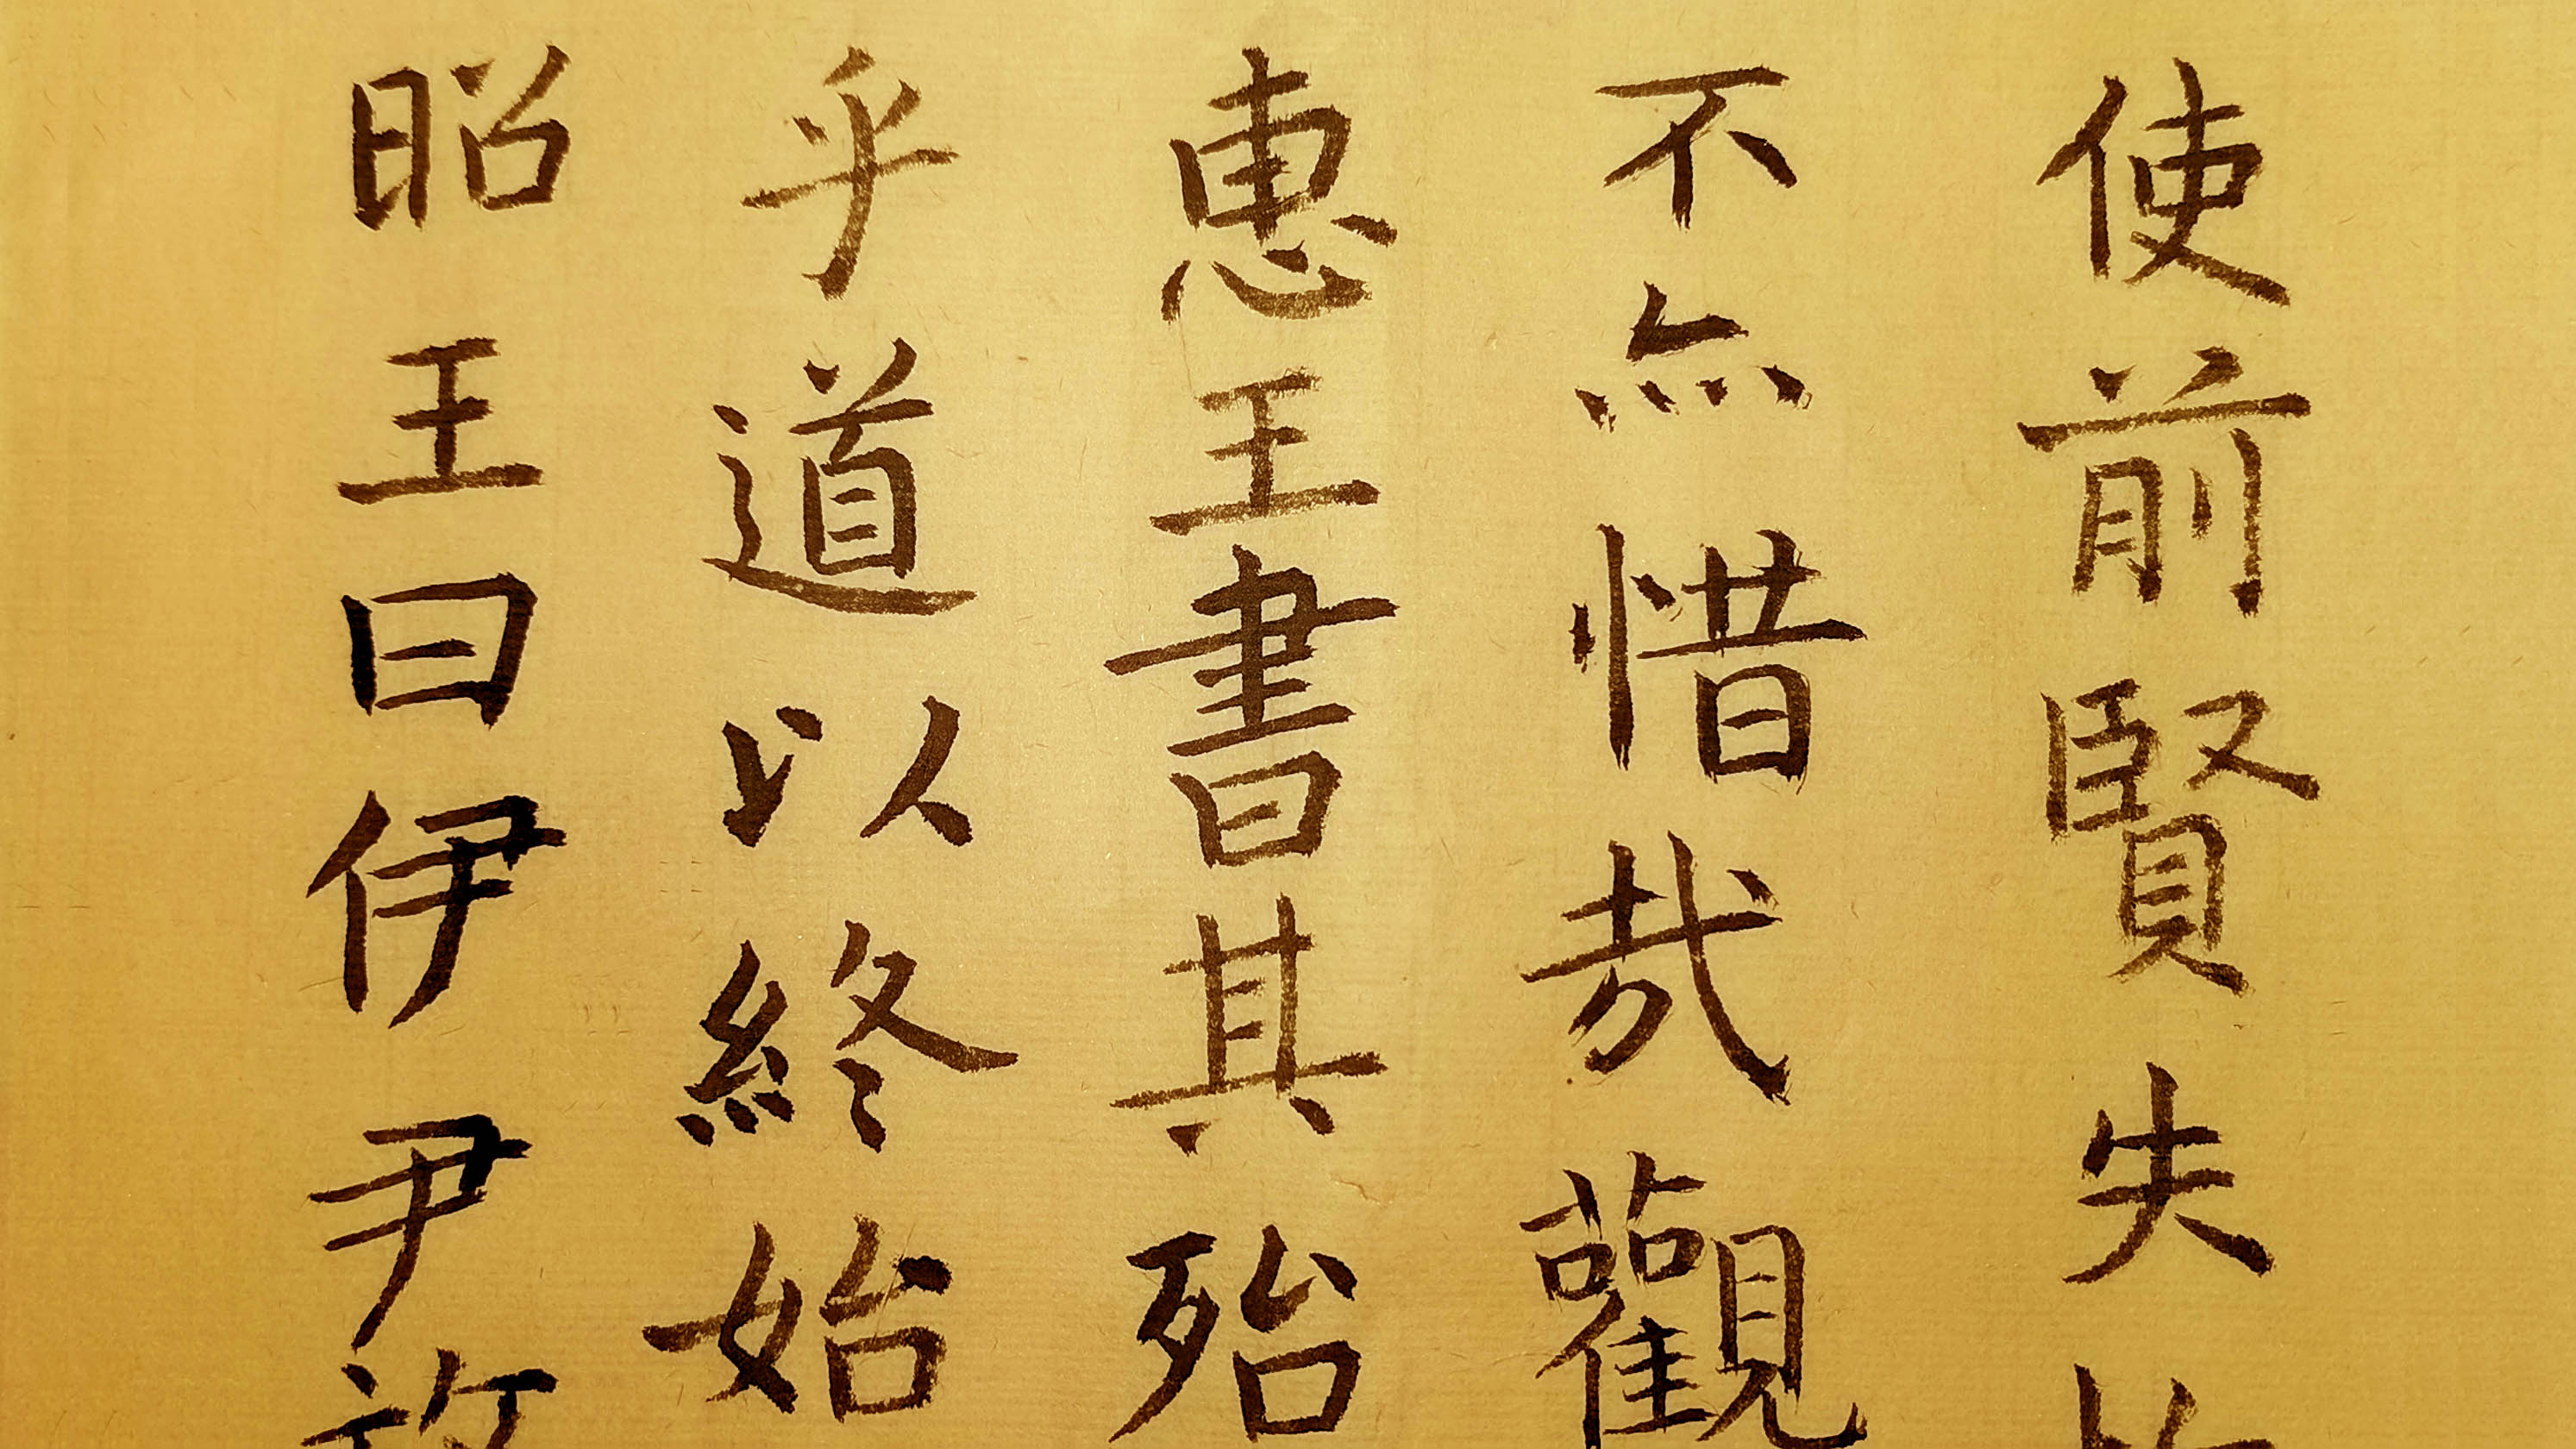 使前賢失
不亦惜哉觀
惠王書其殆
乎道以終始
昭王曰伊尹